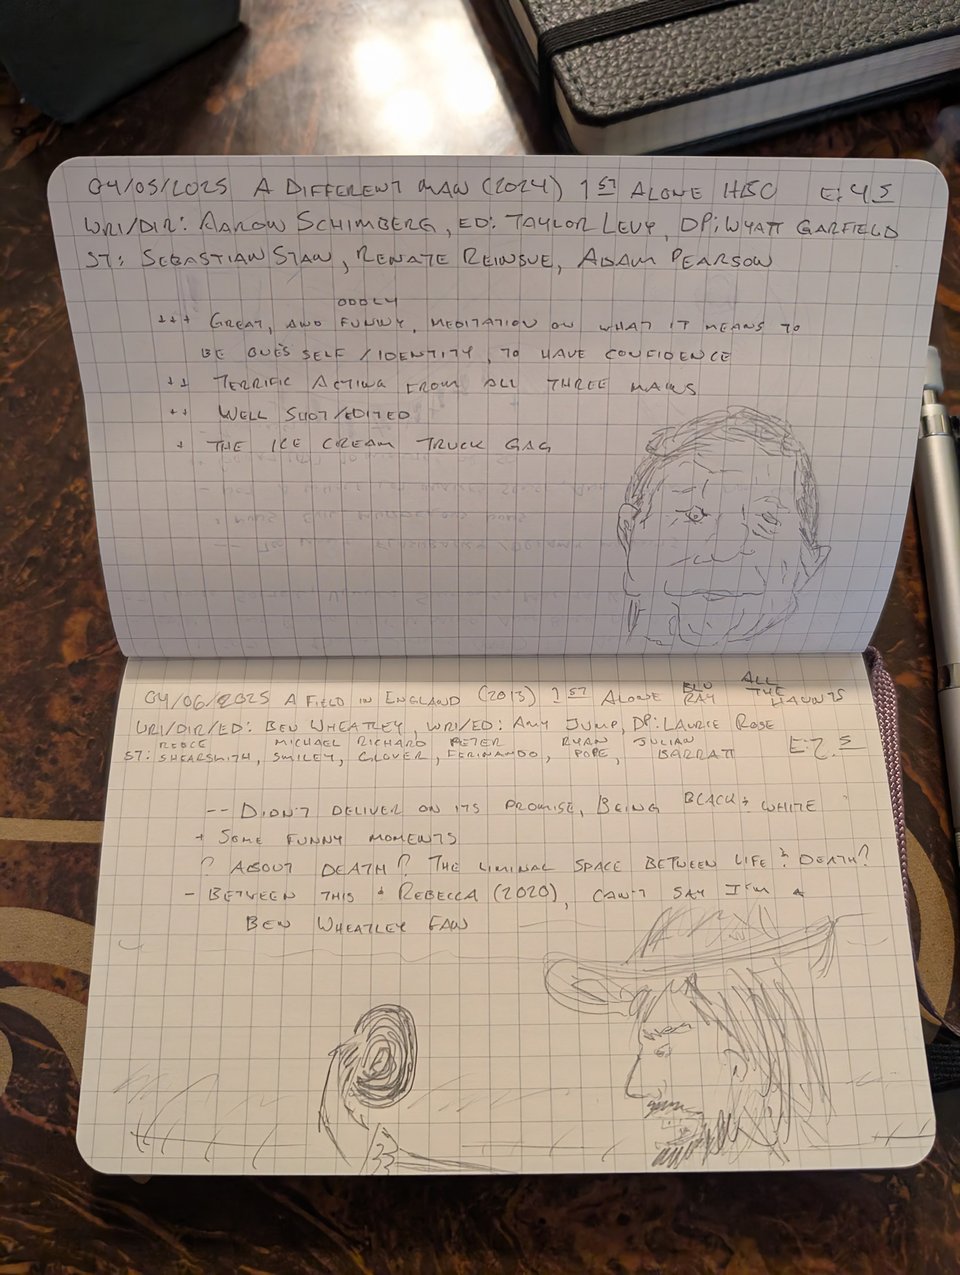 04/05/2025 A DIFFERENT MAN (2024) 1ST ALONE HBO E:4.5
WRI/DIR: AARON SCHIMBERG, ED: TAYLOR LEVY, DP: WYATT GARFIELD
ST: SEBASTIAN STAN, RENATE REINSVE, ADAM PEARSON
+++ GREAT, AND ODDLY FUNNY, MEDITATION ON WHAT IT MEANS TO
BE ONE'S SELF/IDENTITY, TO HAVE CONFIDENCE
++ TERRIFIC ACTING FROM ALL THREE MAINS
++ WELL SHOT/EDITED
+ THE ICE CREAM TRUCK GAG
04/06/2025 A FIELD IN ENGLAND (2013) 1ST ALONE BLU RAY ALL THE HAUNTS
WRI/DIR/ED: BEN WHEATLEY, WRI/ED: AMY JUMP, DP: LAURIE ROSE
ST: REECE SHEARSMITH, MICHAEL SMILEY, RICHARD GLOVER, PETER FERINANDO, RYAN POPE, JULIAN BARRATT E:2.5
-- DIDN'T DELIVER ON ITS PROMISE, BEING BLACK & WHITE
+ SOME FUNNY MOMENTS
? ABOUT DEATH? THE LIMINAL SPACE BETWEEN LIFE & DEATH?
- BETWEEN THIS & REBECCA (2020), CAN'T SAY I'M A
BEN WHEATLEY FAN